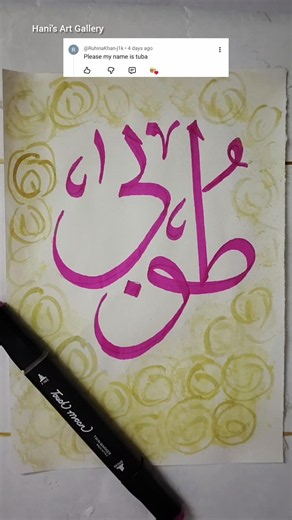 Hani's Art Gallery
@RuhmaKhan-j1k • 4 days ago
Please my name is tuba
طُوبٰی
Touch Mark